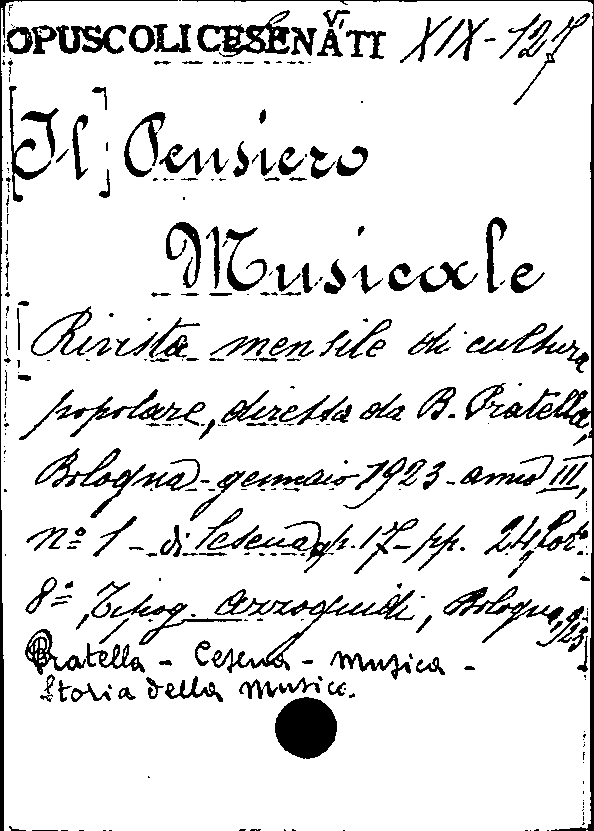 OPUSCOLI CESENATI V. XIX-127
[Il] Pensiero
Musicale
Rivista mensile di cultura
popolare, diretta da B. Pratella,
Bologna - gennaio 1923 - anno III,
nº 1 - di Cesena, p. 17 - pp. 24, for.
8º, Tipog. Azzoguidi, Bologna, 923
Pratella - Cesena - musica -
Storia della musica.